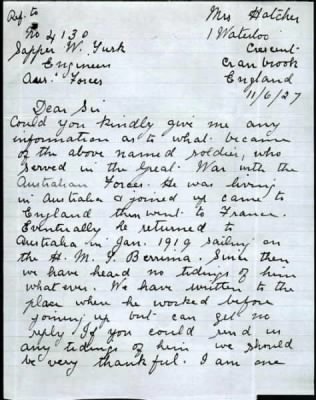 Ref. to
No 4130
Sapper W. Turk
Engineers
Aus. Forces
Mrs Hatcher
1 Waterloo
Crescent
Cranbrook
England
11/6/27
Dear Sir
Could you kindly give me any
information as to what became
of the above named soldier, who
served in the Great War with the
Australian Forces. He was living
in Australia & joined up came to
England then went to France.
Eventually he returned to
Australia in Jan. 1919 sailing on
the H. M. T Berrima. Since then
we have heard no tidings of him
what ever. We have written to the
place where he worked before
joining up but can get no
reply If you could send us
any tidings of him we should
be very thankful. I am one